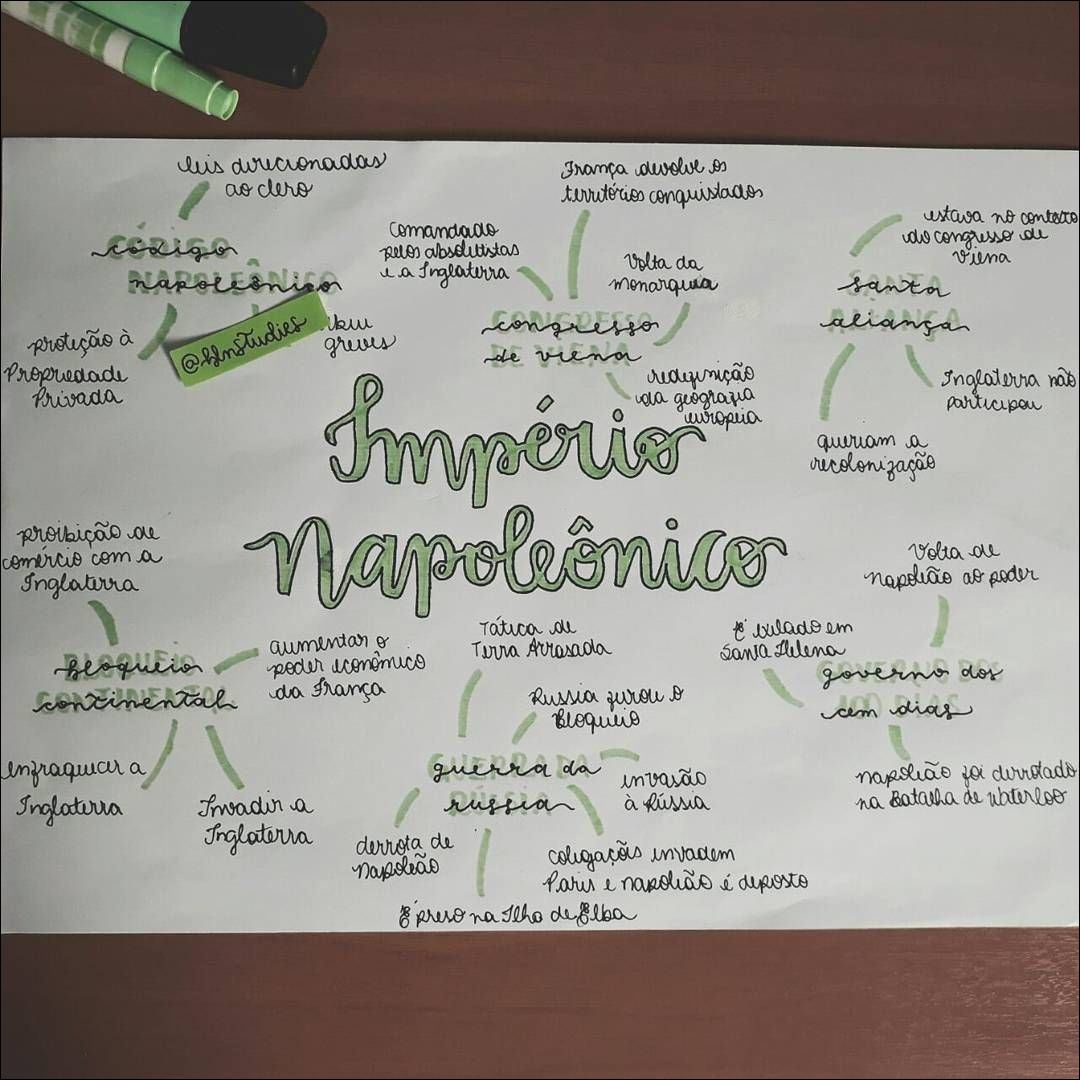 leis direcionadas
ao clero
código
napoleônico
CÓDIGO
NAPOLEÔNICO
proteção à
Propriedade
Privada
@blnstudies
greves
França devolve os
territórios conquistados
Comandado
pelos absolutistas
e a Inglaterra
Volta da
monarquia
congresso
de viena
CONGRESSO
DE VIENA
redefinição
da geografia
europeia
estava no contexto
do congresso de
Viena
santa
aliança
SANTA
ALIANÇA
Inglaterra não
participou
queriam a
recolonização
Império
Napoleônico
proibição de
comércio com a
Inglaterra
bloqueio
continental
BLOQUEIO
CONTINENTAL
aumentar o
poder econômico
da França
enfraquecer a
Inglaterra
Invadir a
Inglaterra
Tática de
Terra Arrasada
Russia furou o
Bloqueio
guerra da
russia
GUERRA DA
RÚSSIA
invasão
à Rússia
derrota de
Napoleão
coligações invadem
Paris e napoleão é deposto
É preso na Ilha de Elba
Volta de
Napoleão ao poder
É exilado em
Santa Helena
governo dos
cem dias
GOVERNO DOS
100 DIAS
napoleão foi derrotado
na Batalha de Waterloo